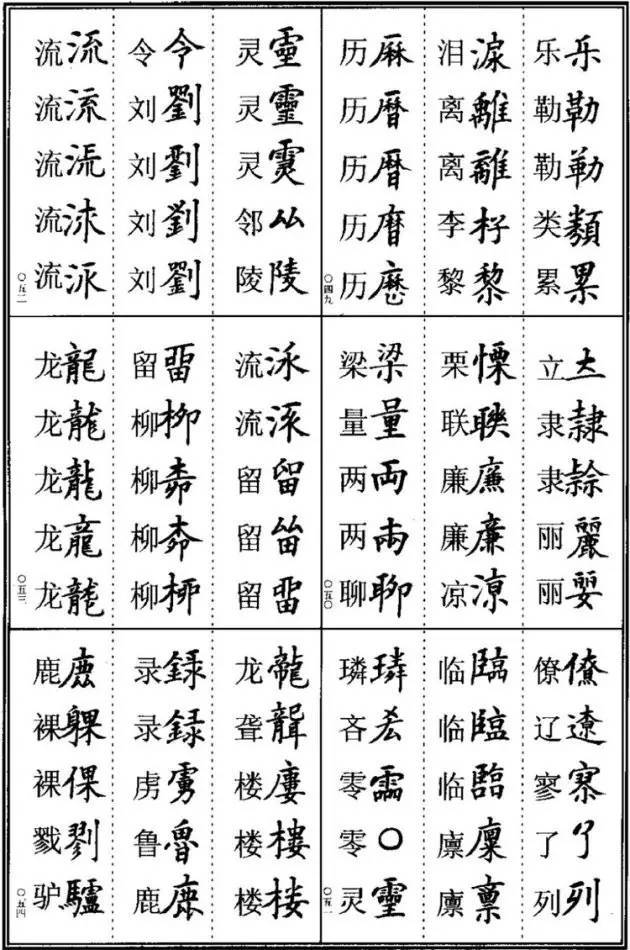 乐乐
勒勒
勒勒
类類
累累
泪淚
离離
离離
李杍
黎黎
历厤
历曆
历曆
历
历
〇四九
立
隶隸
隶
丽麗
丽
栗慄
联聫
廉廉
廉廉
凉凉
梁梁
量量
两両
两
聊聊
〇五〇
僚僚
辽遼
寥
了了
列列
临臨
临臨
临臨
廪廩
廪稟
璘璘
吝
零霝
零〇
灵靈
〇五一
灵靈
灵靈
灵
邻厸
陵陵
令令
刘劉
刘劉
刘劉
刘劉
流流
流流
流流
流
流
〇五二
流
流
留留
留
留畱
留畱
柳柳
柳
柳
柳桺
龙龍
龙龍
龙龍
龙龍
龙龍
〇五三
龙龍
聋聾
楼廔
楼樓
楼楼
录録
录録
虏虜
鲁魯
鹿鹿
鹿鹿
裸躶
裸倮
戮剹
驴驢
〇五四